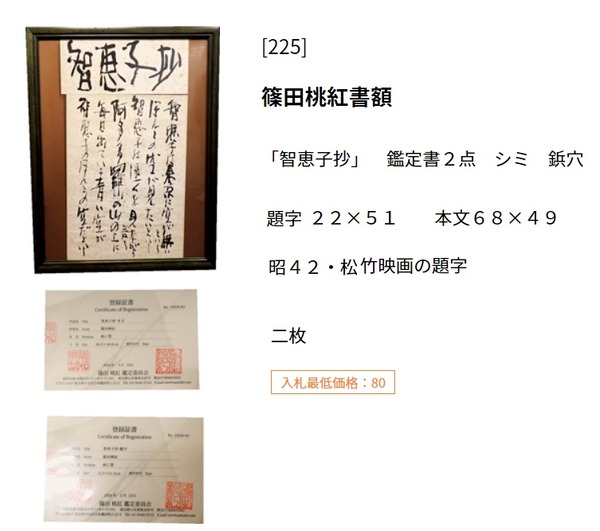 [225]
篠田桃紅書額
「智恵子抄」　鑑定書２点　シミ　鋲穴
題字 ２２×５１　　本文６８×４９
昭４２・松竹映画の題字
二枚
入札最低価格：80
智恵子抄
智恵子は東京に空が無い
といふ
ほんとの空が見たいといふ
智恵子は遠くを見ながら
言ふ
阿多多羅山の山の上に
毎日出てゐる青い空が
智恵子のほんとの空だといふ
登録証書
Certificate of Registration
篠田 桃紅 鑑定委員会
登録証書
Certificate of Registration
篠田 桃紅 鑑定委員会